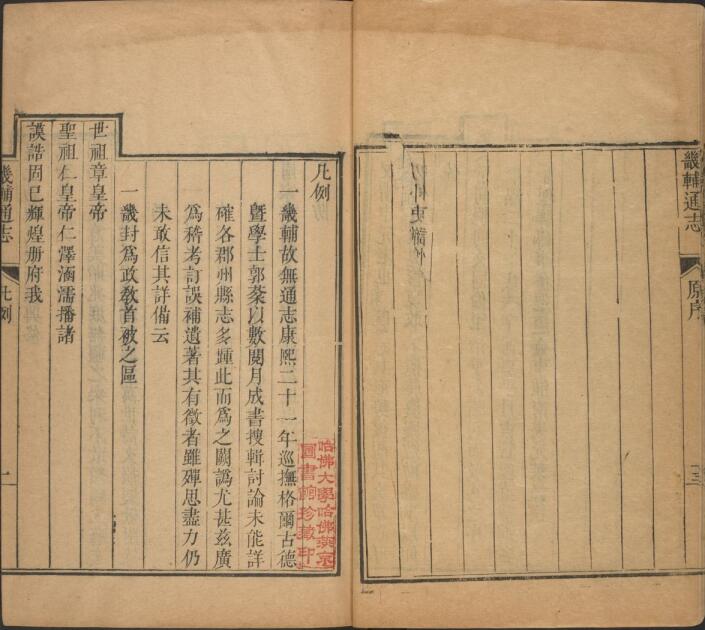 畿輔通志
原序
三
凡例
一畿輔故無通志康熙二十一年巡撫格爾古德
暨學士郭棻以數閱月成書搜輯討論未能詳
確各郡州縣志多踵此而爲之闕譌尤甚兹廣
爲稽考訂誤補遺著其有徵者雖殫思盡力仍
未敢信其詳備云
一畿封爲政敎首被之區
世祖章皇帝
聖祖仁皇帝仁澤涵濡播諸
謨誥固已輝煌册府我
畿輔通志
凡例
一
哈佛大學哈佛燕京
圖書館珍藏印